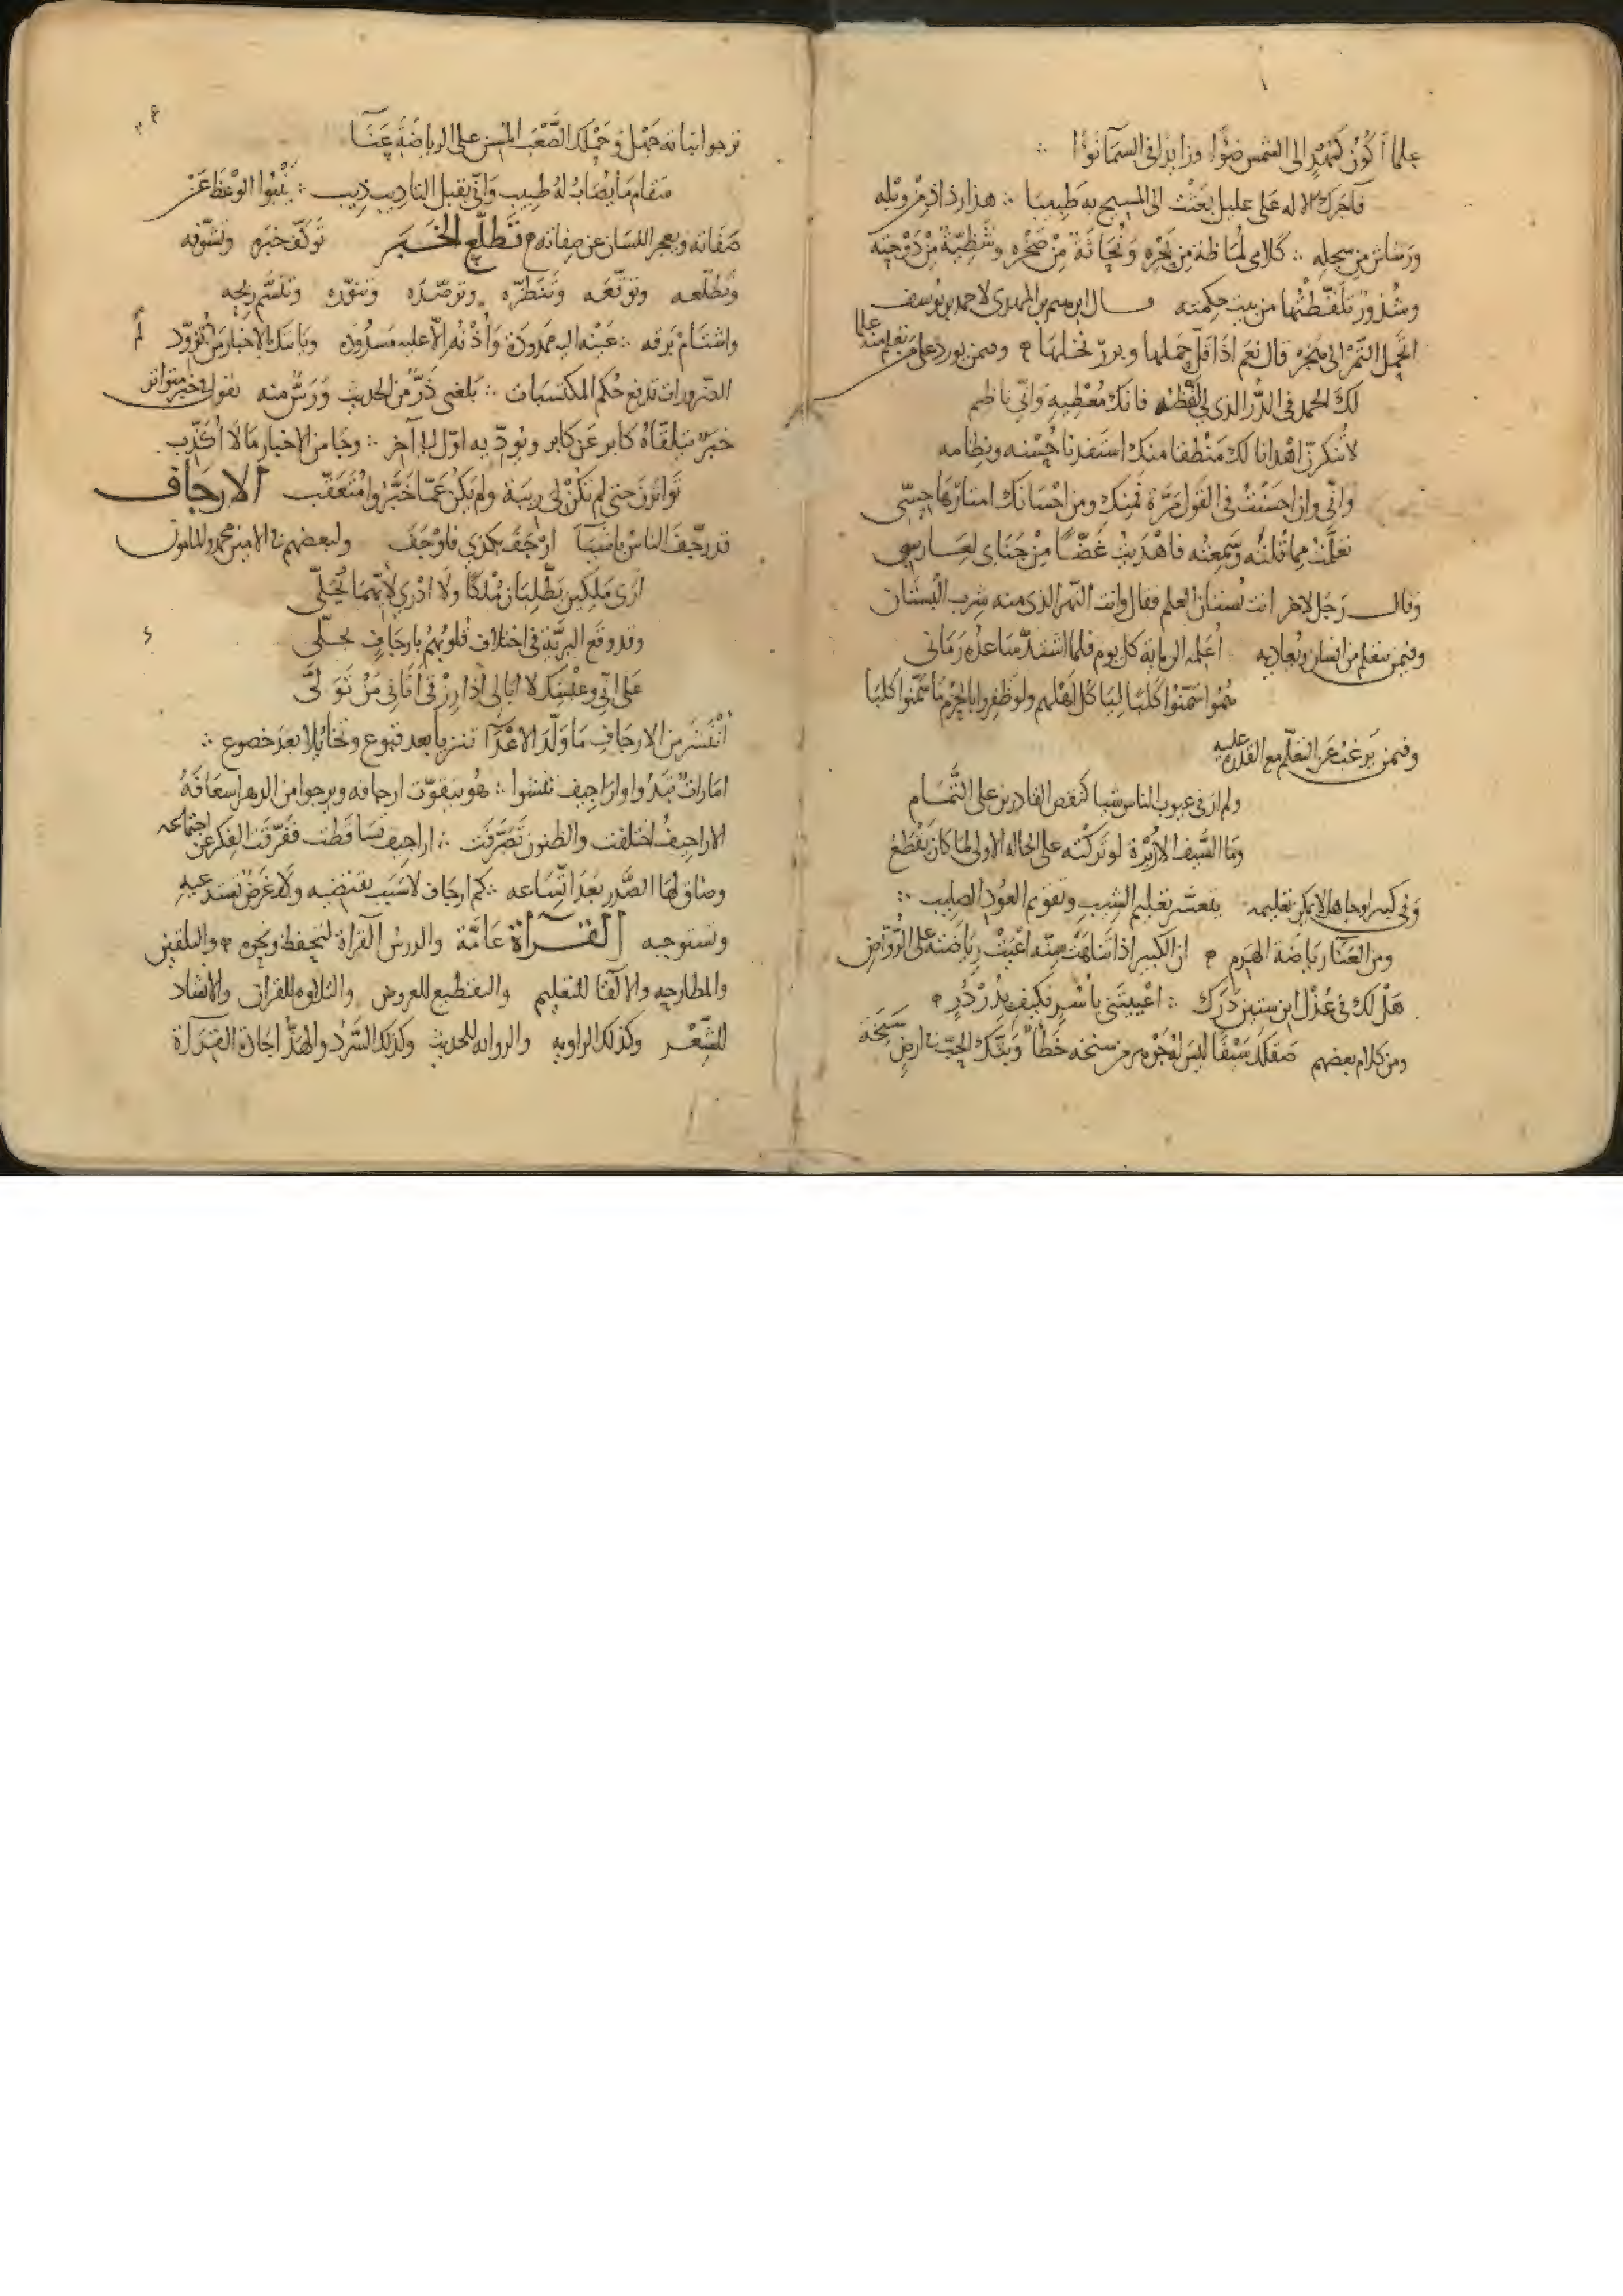 علما أكون كمهدٍ الى الشمس ضوًا وزايدا فى السماء نوًا ∴
فآجرك الاله على عليل بعثت الى المسيح به طبيبا ∴ هذا رذاذ من وبله
ورشاش من سجله ∴ كلامى لماظة من بحره ونحاتة من صخره وشظية من دوحته
وشذور تلقطتها من بيت حكمته وقال ابرهيم بن المهدى لاحمد بن يوسف
اتحمل التمر الى هجر قال نعم اذا قل حملها وبردّ نخلها ۞ وفيمن يورد على من تعلم منه علما
لك الحمد فى الدُّر الذى لى لفظه فانك معطيه وانى ناظم
لا تنكرنّ اهدانا لك منطقا منك استفدنا حسنه ونظامه
وانى وان احسنت فى القول مرة فمنك ومن احسانك امتارها حسّى
تعلمت مما قلته وسمعته فاهديت غضًّا من جناى لغارسى
وقال رجل لاخر انت بستان العلم فقال وانت النهر الذى منه شرب البستان
وفيمن يتعلم من انسان ويعاديه اعلمه الرماية كل يوم فلما اشتدّ ساعده رمانى
هموا سمنوا كلبا ليأكل اهلهم ولو ظفروا بالحزم ما سمنوا كلبا
وفيمن يرغب عن التعلم مع القدرة عليه
ولم ار فى عيوب الناس شيا كنقص القادرين على التمام
وما السيف الا زبرة لو تركته على الحاله الاولى لما كان يقطع
وفى كبير او جاهل لا يمكن تعليمه يتعسّر تعليم الشيب وتقويم العود الصليب ∴
ومن العنا رياضة الهرم ۞ ان الكبير اذا تناهت سنه اعيت رياضته على الرواض
هل لك فى غزل ابن ستين درك ∴ اعييتنى باشر فكيف بدردر ۞
ومن كلام بعضهم صقلك سيفا ليس له جوهر من سنخه خطأ وبثّك الحبّ فى ارض سبخة
ترجو انباته جهل وحملك الصعب المسن على الرياضة عنا
سقام ما يصاب له طبيب وانى يقبل التاديب ذيب ∴ ينبوا الوعظ عن
صفاته ويعجز اللسان عن صفاته ۞ تَطَلّع الخَبَر توكّف خبره وتشوّفه
وتطلّعه وتوقّعه وتنظره وترصّده وتنوّره وتنسّم ريحه
واشتام برقه ∴ عينه اليه ممدودة واذنه الا عليه مسدوده وياتيك بالاخبار من لم تزوّد
الضرورات تدفع حكم المكتسبات ∴ بلغنى ذرٌّ من الحديث ورسٌّ منه تقول فى خبر متواتر
خبر يتلقاه كابر عن كابر ويودّيه اوّل الى آخر ∴ وجا من الاخبار ما لا اكذّب
تواترن حتى لم تكن لى ريبة ولم يكن عما خبّروا متعقّب الارجاف
قد رجف الناس باشيا ارجف بكذى فاوجف ولبعضهم فى الامين محمد والمامون
ارى ملكين يطلبان ملكا ولا ادرى لايهما تجلّى
وقد وقع البرية فى اختلاف قلوبهم بارجاف تحلّى
على انى وعيشك لا ابالى اذا رزقى اتانى من تولى
انتشر من الارجاف ما ولّد الاعدآ تنزيا بعد قبوع وتخايلا بعد خضوع ∴
امارات تبدوا واراجيف تفشوا ∴ هو يتقوّت ارجافه ويرجوا من الدهر اسعافه
الاراجيف اختلفت والظنون تصرّفت ∴ اراجيف تساقطت ففرّقت الفكر عن اجتماعه
وضاق لها الصدر بعد اتساعه ∴ كم ارجاف لا سبب يقتضيه ولا غرض يستدعيه
ويستوجبه القرآة عامّة والدرس القرآة لتحفظ ونحوه ۞ والتلقين
والمطارحه والالقا للتعليم والتقطيع للعروض والتلاوه للقران والانشاد
للشّعر وكذلك الراويه والروايه للحديث وكذلك السّرد والهذّ اجادة القرآة